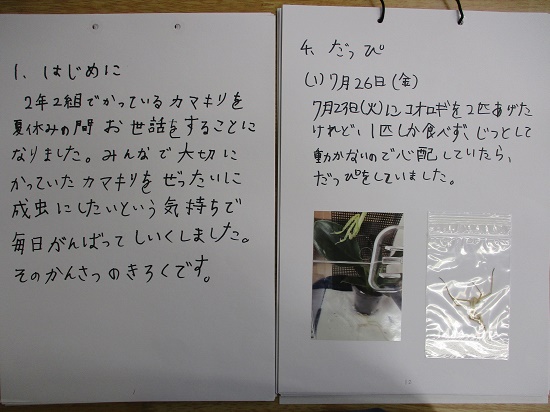 1. はじめに
2年2組でかっているカマキリを
夏休みの間 お世話をすることに
なりました。みんなで大切に
かっていたカマキリをぜったいに
成虫にしたいという気持ちで
毎日がんばってしいくしました。
そのかんさつのきろくです。
4. だっぴ
(1) 7月26日(金)
7月23日(火)にコオロギを2匹あげた
けれど、1匹しか食べず、じっとして
動かないので心配していたら、
だっぴをしていました。